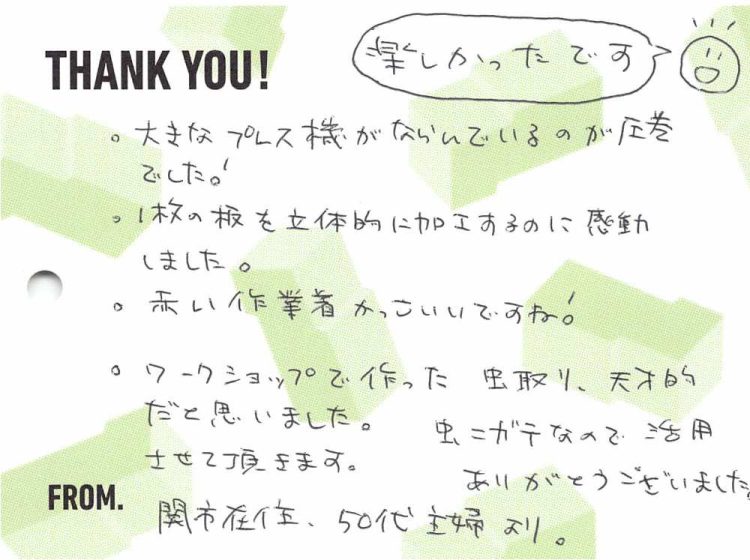 THANK YOU!
楽しかったです
。大きなプレス機がならんでいるのが圧巻
でした。!
。1枚の板を立体的に加工するのに感動
しました。
。赤い作業着かっこいいですね!
。ワークショップで作った 虫取り、天才的
だと思いました。 虫ニガテなので活用
させて頂きます。 ありがとうございました。
FROM.
関市在住、50代主婦より。